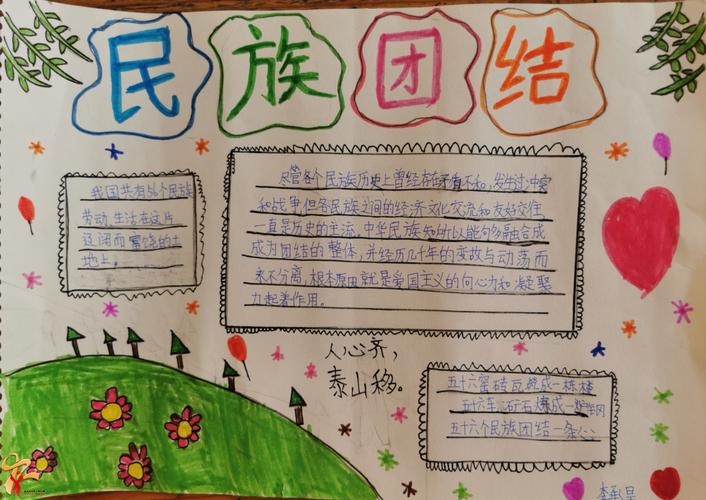 民族团结
我国共有56个民族
劳动生活在这片
辽阔而富饶的土
地上。
尽管各个民族历史上曾经存在矛盾不和,发生过冲突
和战争,但各民族之间的经济文化交流和友好交往
一直是历史的主流,中华民族知所以能够多融合成
成为团结的整体,并经历几十年的变故与动荡而
永不分离,根本原因就是爱国主义的向心力和凝聚
力起着作用。
人心齐,
泰山移。
五十六窑砖瓦绕成一栋楼
五十六车矿石炼成一炉钢
五十六个民族团结一条心